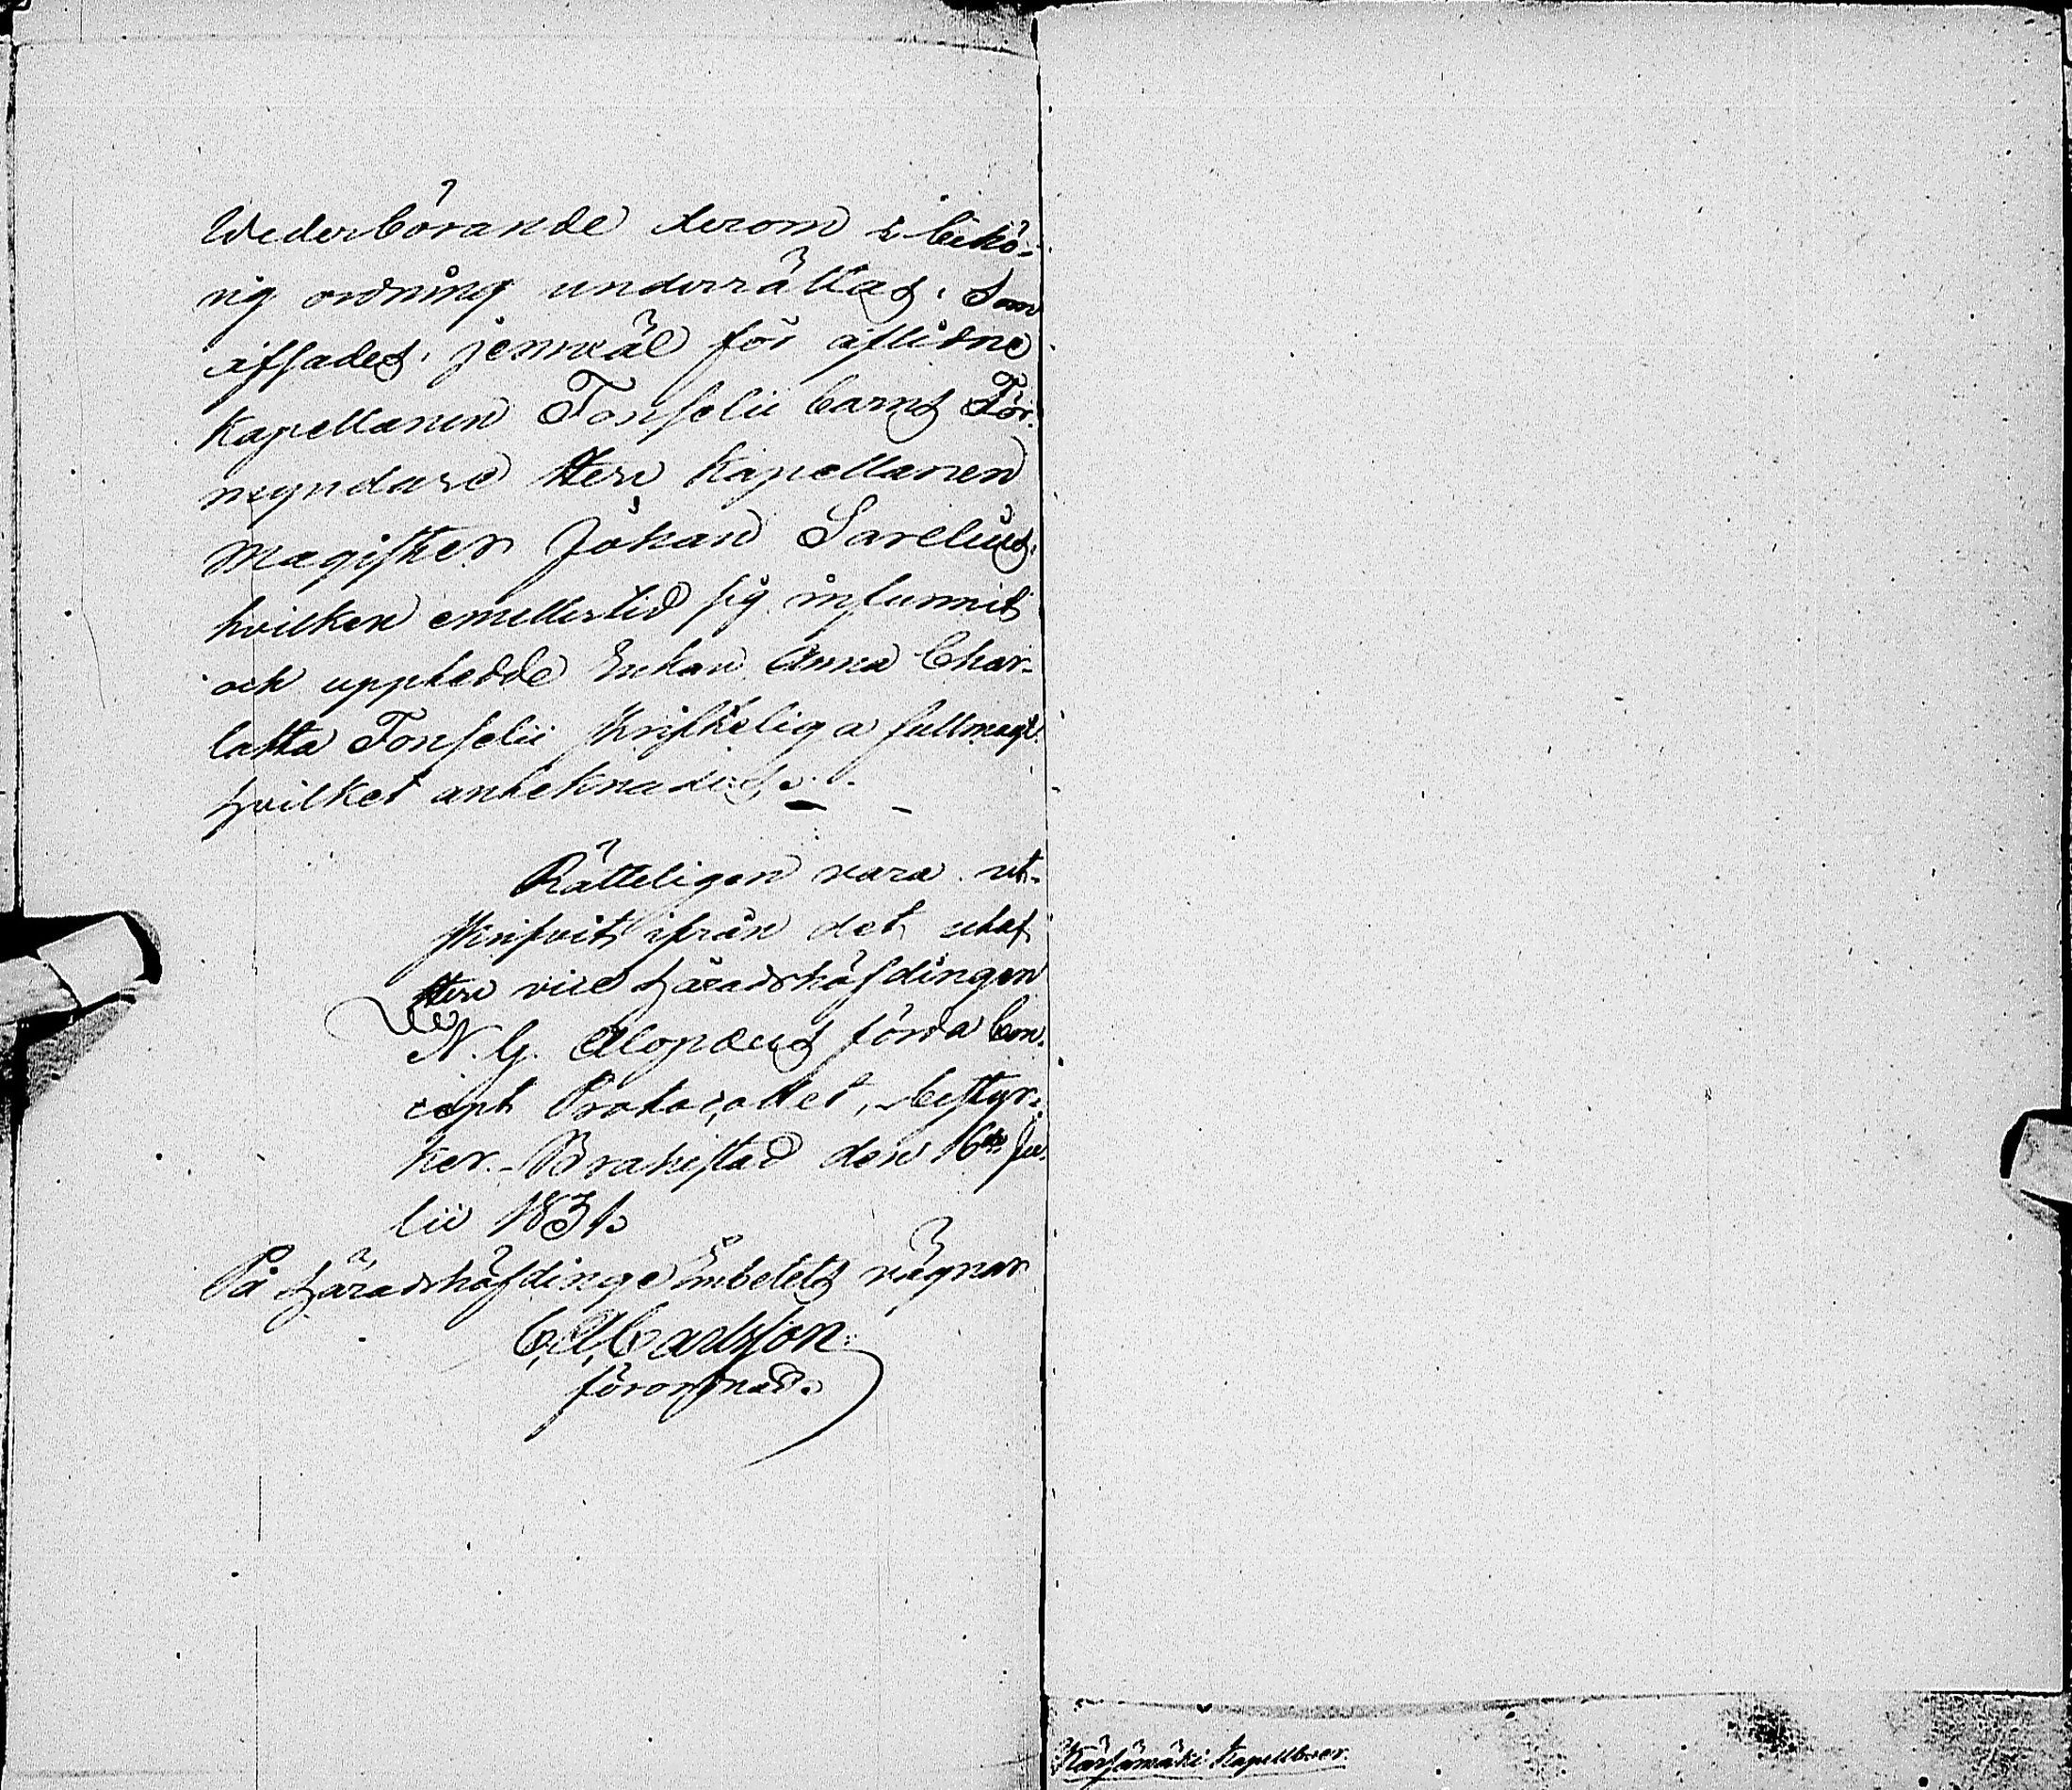 Wederbörande derom i behö-
rig ordning underrättas. Som
afsades, jemwäl för aflidne
Kapellanen Fonselii barns För-
myndare Herr Kapellanen
Magister Johan Sarelius,
hvilken emellertid sig infunnit
och uppledde Enkan Anna Char-
lotta Fonselii skrifteliga fullmagt.
Hvilket antecknades. –
Rätteligen vara ut-
skrifvit ifrån det utaf
Herr vice Häradshöfdingen
N. G. Alopæus förda Con-
cept Protocollet, bestyr-
ker. Brahestad den 16de Ju-
lii 1831.
På Häradshöfdinge Embetets vägnar
Carlsson
förordnad.
Kärsämäki Kapellboer.